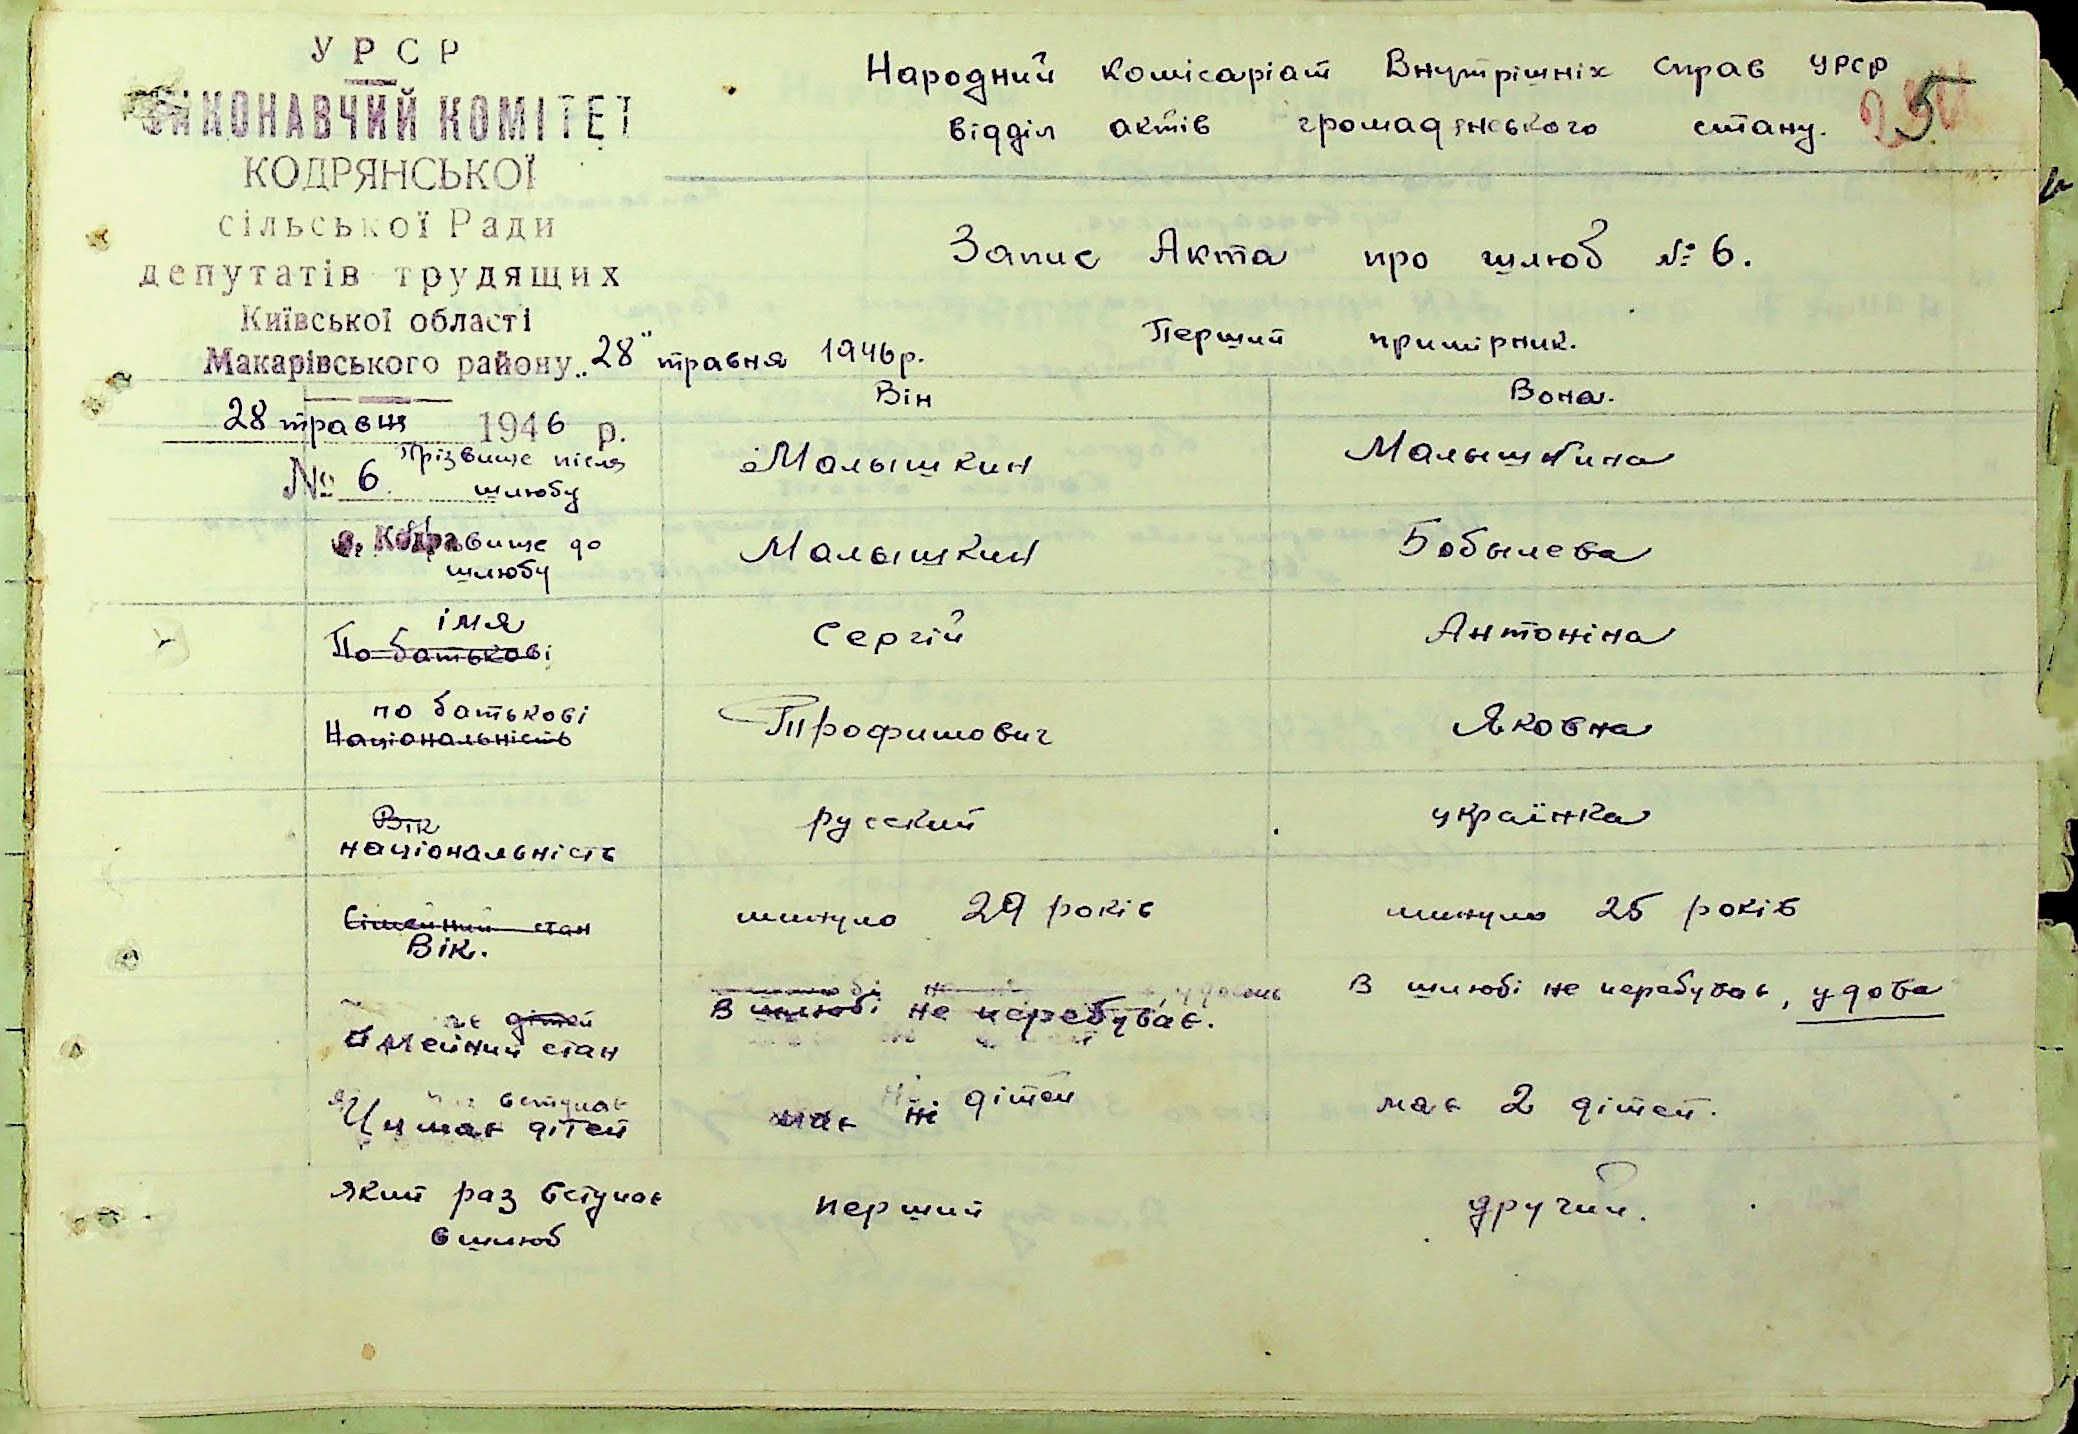 УРСР
ВИКОНАВЧИЙ КОМІТЕТ
КОДРЯНСЬКОЇ
сільської Ради
депутатів трудящих
Київської області
Макарівського району
28 травня 1946 р.
№ 6.
с. Кодра
Народний комісаріат Внутрішніх справ УРСР
відділ актів громадянського стану.
5
Запис Акта про шлюб № 6.
Перший примірник.
"28" травня 1946 р.
Він Вона.
Прізвище після шлюбу Малышкин Малышкина
Прізвище до шлюбу Малышкин Бобылева
імя
По батькові Сергій Антоніна
по батькові
Національність Трофимович Яковна
Вік
національність русский українка
Сімейний стан
Вік. минуло 29 років минуло 25 років
дітей
Сімейний стан В шлюбі не перебуває. В шлюбі не перебуває, удова
вступає
Чи має дітей має ні дітей має 2 дітей.
який раз вступає
в шлюб перший другий.